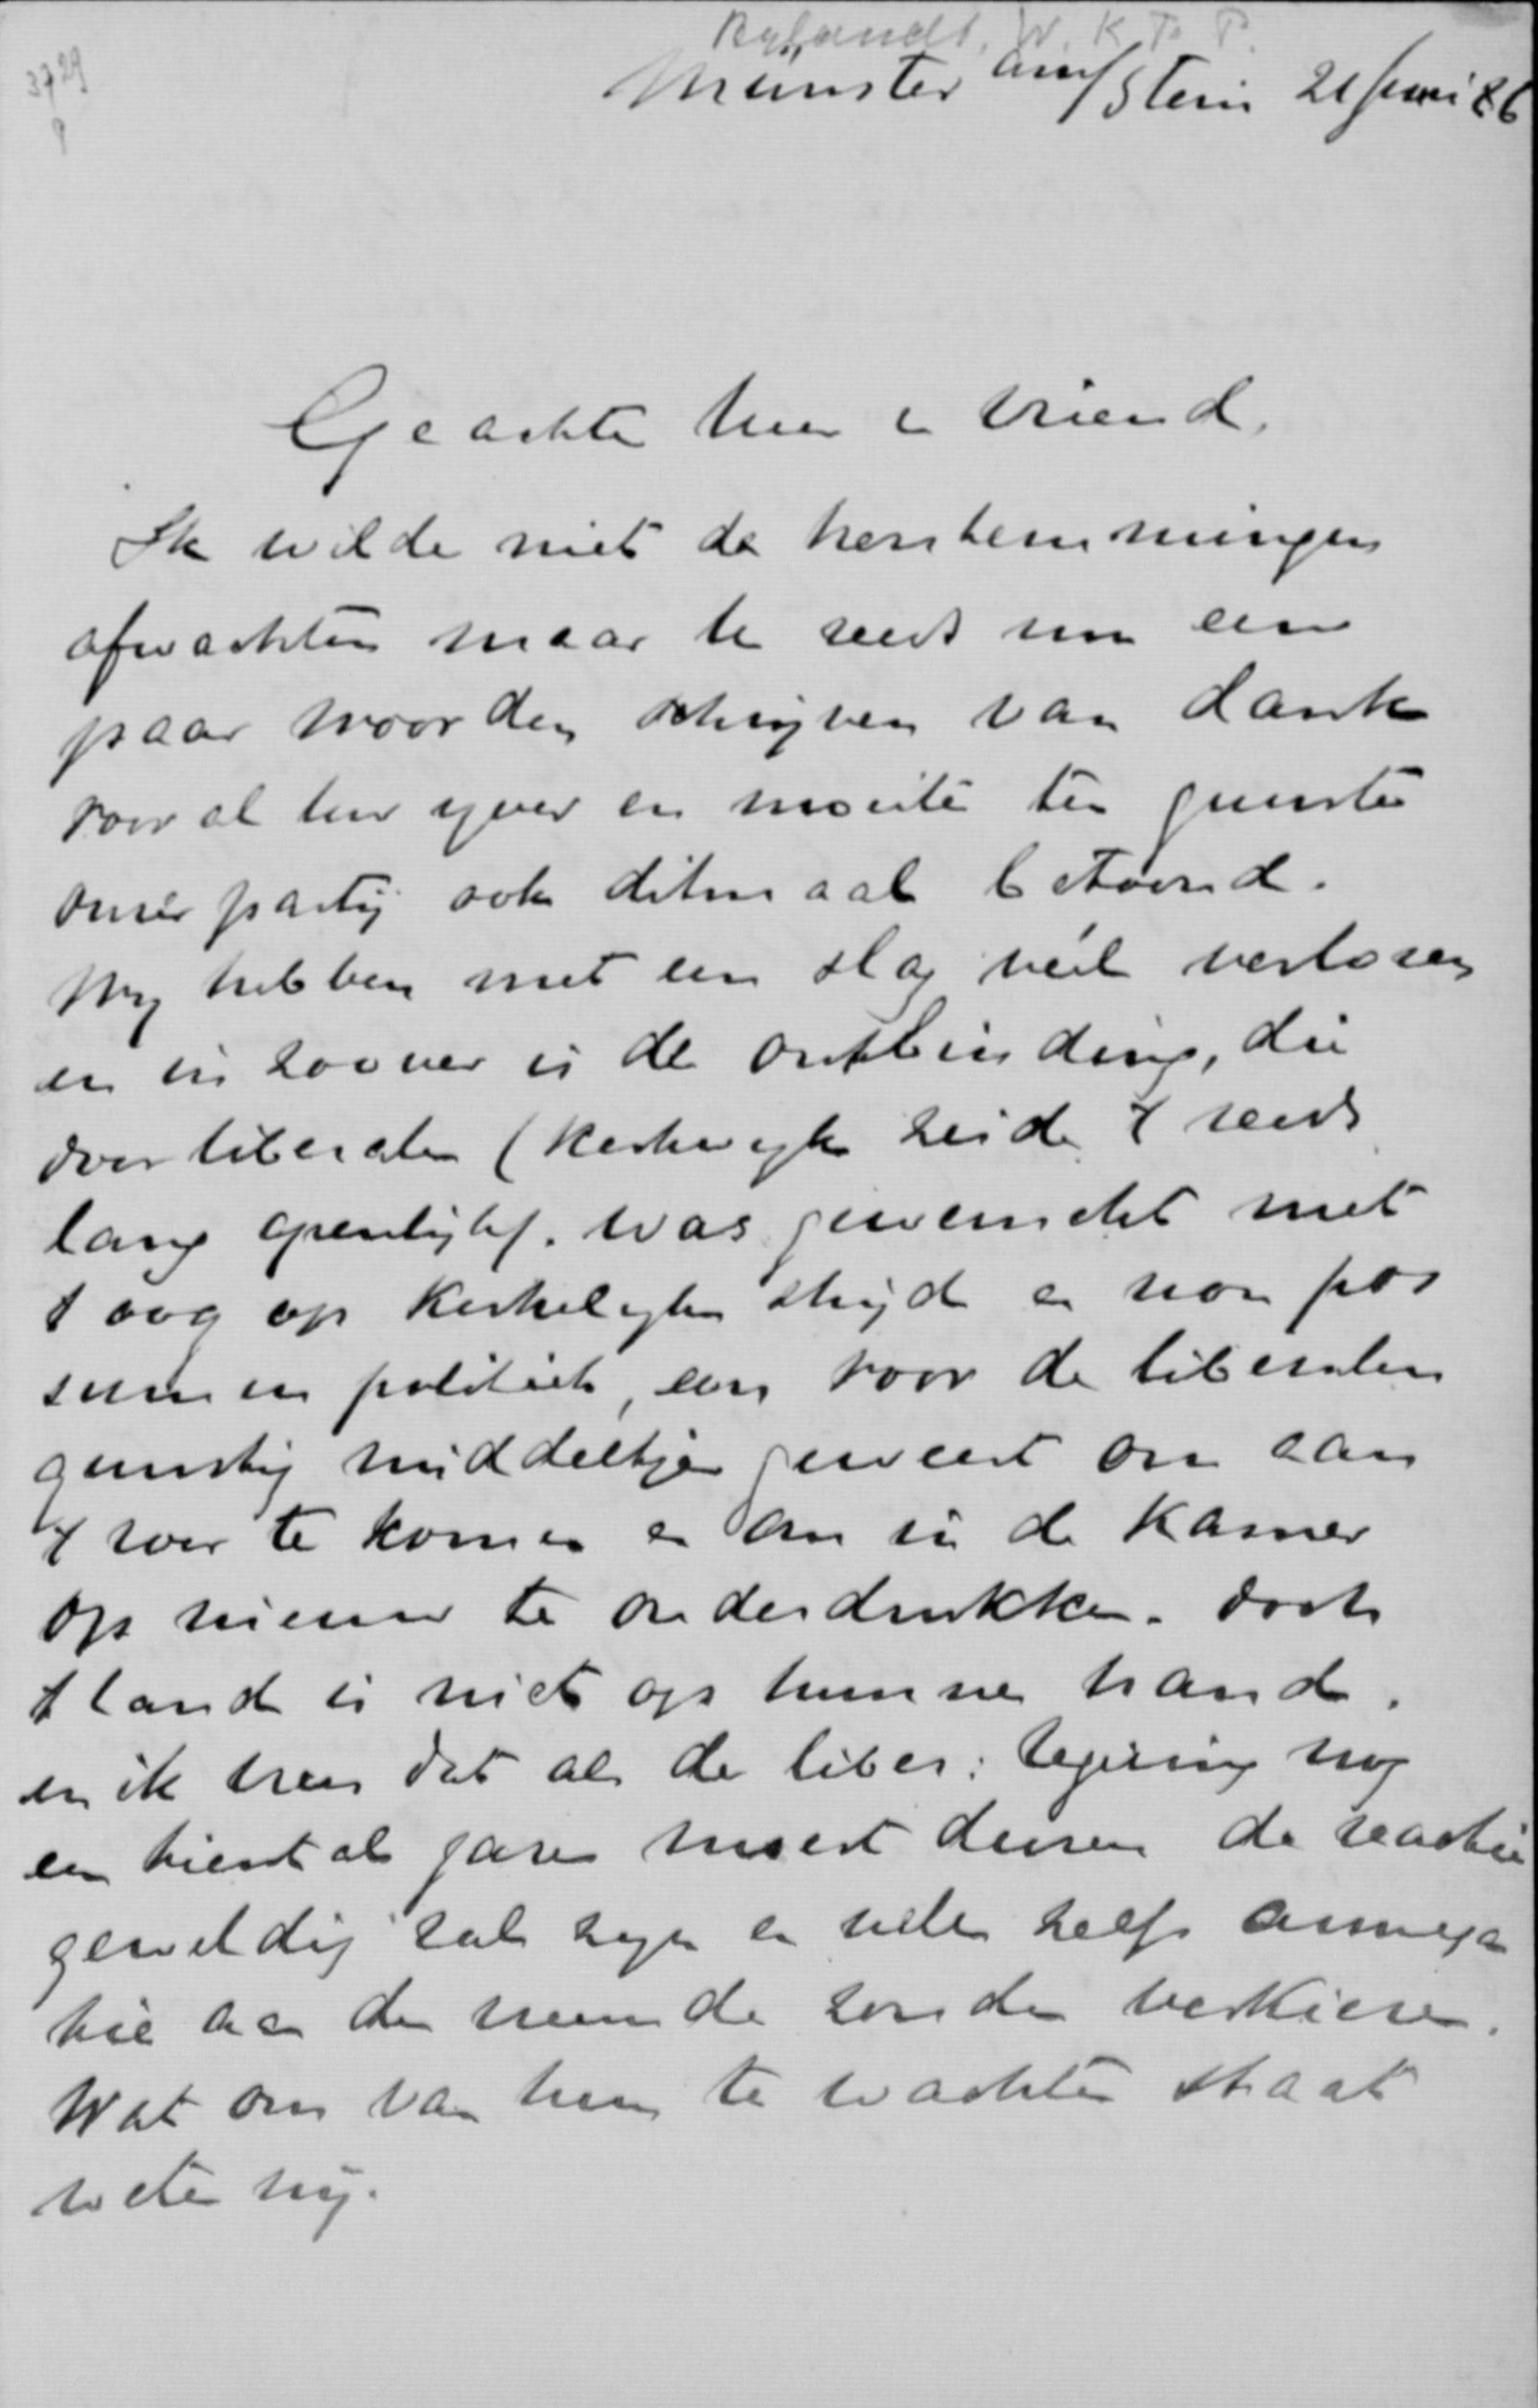 3729
Rylandt, W. K. F. P.
Münster am/Stein 21 Juni 86
Geachte heer en vriend,
Ik wilde niet de herstemmingen
afwachten maar U reeds nu een
paar woorden schrijven van dank
voor al Uw ijver en moeite ten gunste
onzer partij ook ditmaal betoond.
Wij hebben met een slag veel verloren
en in zoover is de ontbinding, die
door liberalen (Kerkwijk zeide 't reeds
lang openlijk). was gewenscht met
't oog op Kerkelijken strijd en non pos
sumus politiek, een voor de liberalen
gunstig middeltje geweest om aan
't roer te komen en ons in de Kamer
op nieuw te onderdrukken. Doch
't land is niet op hunne hand.
en ik vrees dat als de liber: regering nog
een tiental jaren moest duren de reactie
geweldig zal zyn en velen zelfs annexa
tie aan de vreemde zouden verkiezen.
Wat ons van hen te wachten staat
weten wij.